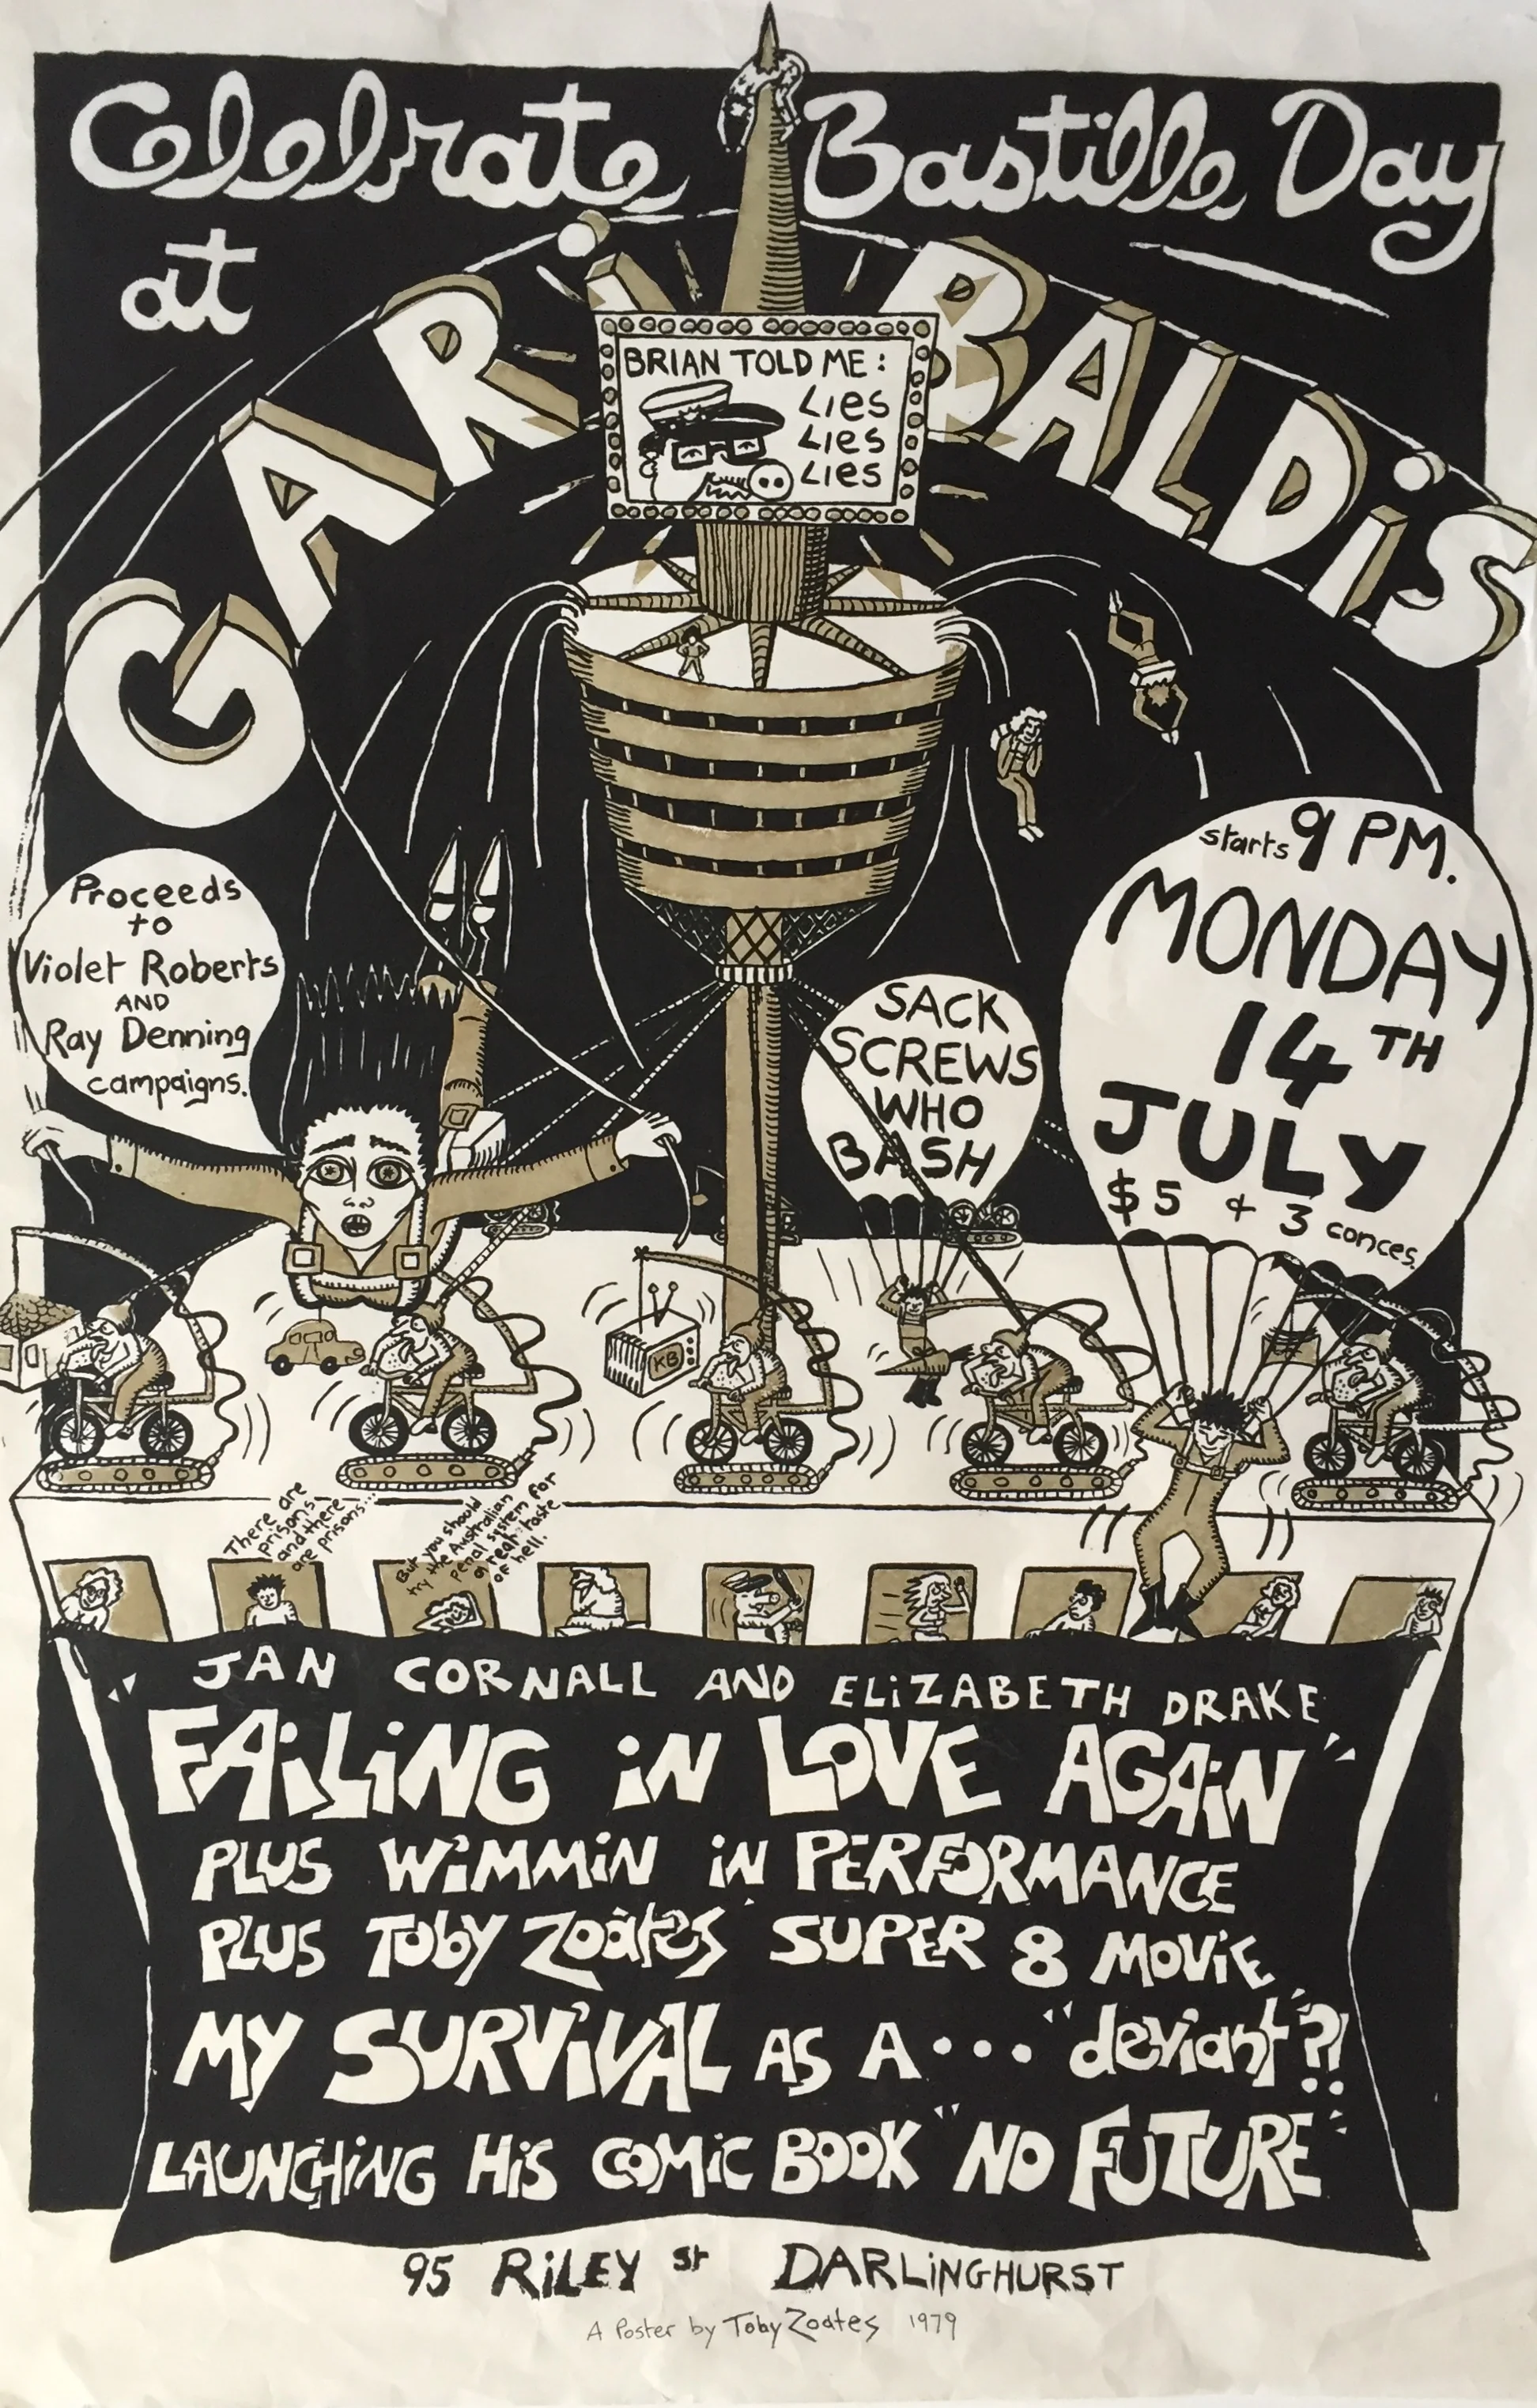 Celebrate Bastille Day
at
GARiBALDiS
BRIAN TOLD ME:
Lies
Lies
Lies
Proceeds
to
Violet Roberts
AND
Ray Denning
campaigns.
SACK
SCREWS
WHO
BASH
starts 9 PM.
MONDAY
14TH
JULY
$5 & 3 conces.
KB
There are
prisons,
and there
are prisons...
But you should
try the Australian
penal system for
a real taste
of hell.
"JAN CORNALL AND ELiZABETH DRAKE
FAiLiNG iN LOVE AGAiN"
PLUS WiMMiN iN PERFORMANCE
PLUS Toby Zoates' SUPER 8 MOViE
MY SURViVAL AS A... "deviant"?!
LAUNCHiNG HiS COMiC BOOK "NO FUTURE"
95 RiLEY St DARLiNGHURST
A Poster by Toby Zoates 1979